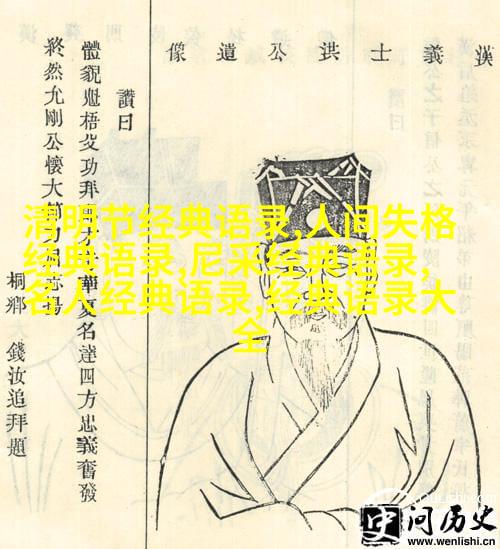 漢義士洪公遺像
讚曰
體貌魁梧
終然允剛公懷大節
華夏名達四方忠義奮發
桐鄉 錢汝追拜題
清明节经典语录,人间失格
经典语录,尼采经典语录,
名人经典语录,经典语录大
全
史问历史
www.wenlishi.cn